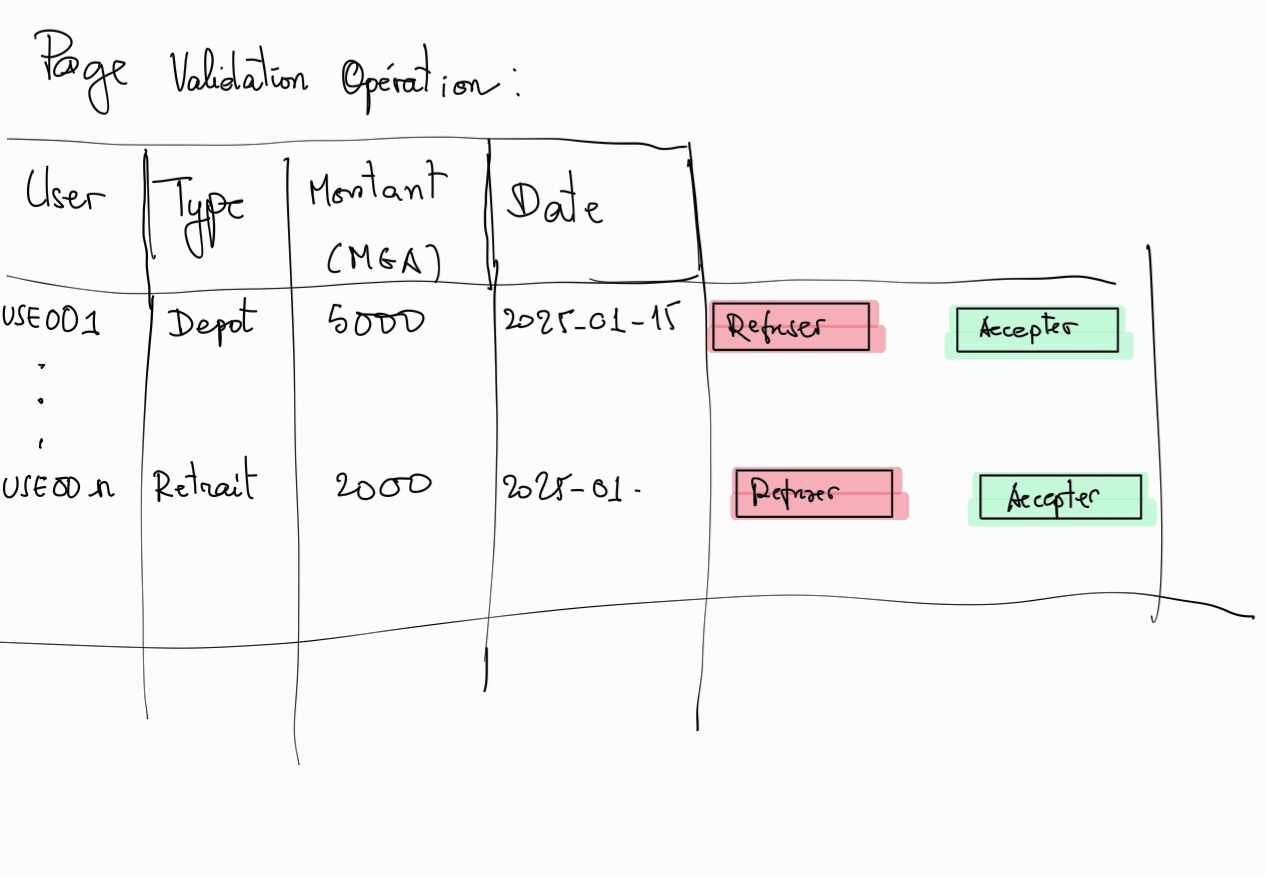 Page Validation Opération :
User Type Montant (MGA) Date
USE001 Depot 5000 2025-01-15 Refuser Accepter
USE00n Retrait 2000 2025-01- Refuser Accepter